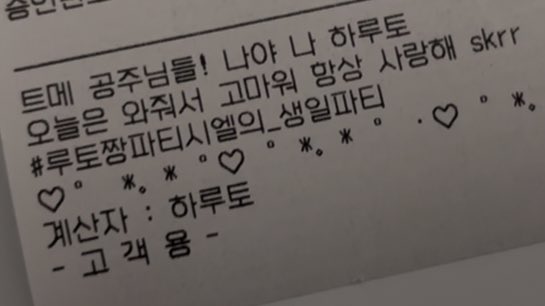 트메 공주님들! 나야 나 하루토
오늘은 와줘서 고마워 항상 사랑해 skrr
#루토짱파티시엘의_생일파티
♡° *。* °♡ ° *。* ° ·♡ ° *。
계산자 : 하루토
- 고 객 용 -